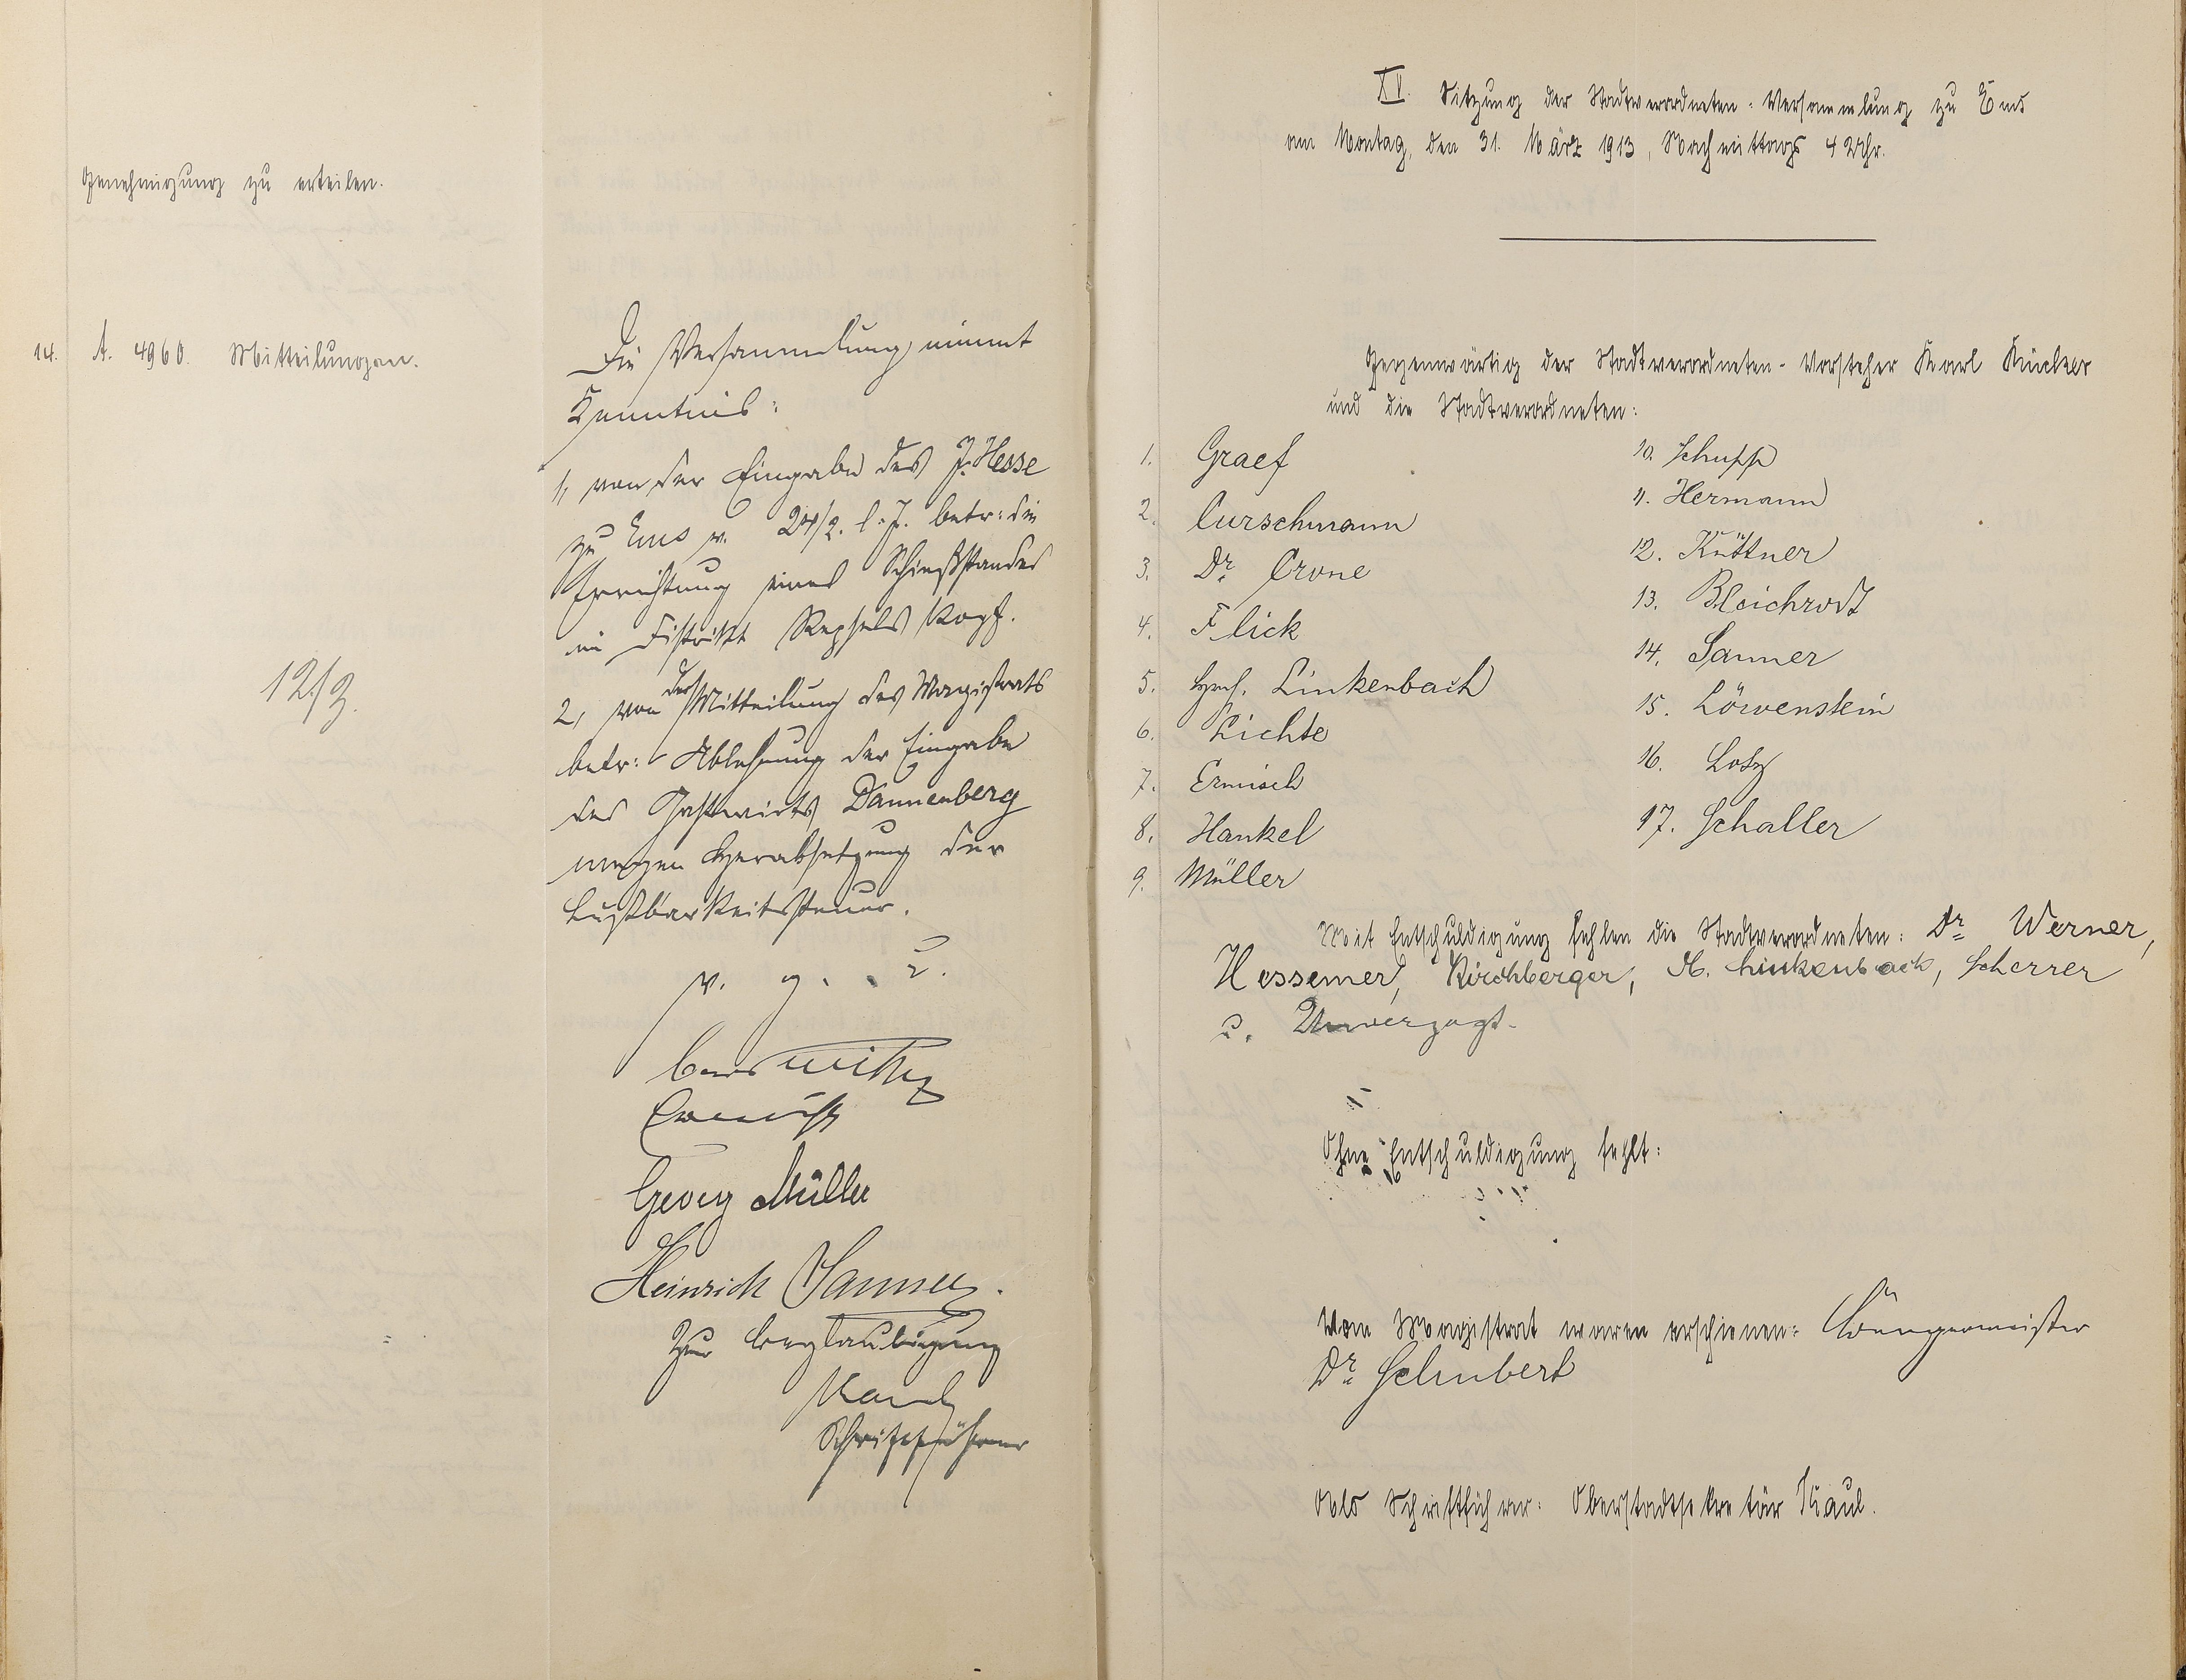 Genehmigung zu erteilen.
14. A. 4960. Mitteilungen.
12/3.
Die Versammlung nimmt
Kenntnis:
1, von der Eingabe des J. Hesse
zu Ems v. 24/2. l. J. betr: die
Errichtung eines Schießstandes
im Distrikt Kopf.
2, von der Mitteilung des Magistrats
betr: Ablehnung der Eingabe
des Gastwirts Dannenberg
wegen Herabsetzung der
Lustbarkeitssteuer.
v. g. u.
Ermisch
Georg Müller
Heinrich Sanner.
Zur Beglaubigung
Kaul
Schriftführer
XV. Sitzung der Stadtverordneten-Versammlung zu Ems
am Montag, den 31. März 1913, Nachmittags 4 Uhr.
Gegenwärtig der Stadtverordneten-Vorsteher Karl Rücker
und die Stadtverordneten:
1. Graef
2. Curschmann
3. Dr. Crone
4. Flick
5. Hch. Linkenbach
6. Lichte
7. Ermisch
8. Hankel
9. Müller
10. Schupp
11. Hermann
12. Küttner
13. Bleichrodt
14. Sanner
15. Löwenstein
16. Lotz
17. Schaller
Mit Entschuldigung fehlen die Stadtverordneten: Dr. Werner,
Hessemer, Kirchberger, A. Linkenbach, Scherrer
u. Unverzagt.
Ohne Entschuldigung fehlt:
Vom Magistrat waren erschienen: Bürgermeister
Dr. Schubert
Als Schriftführer: Oberstadtsekretär Kaul.